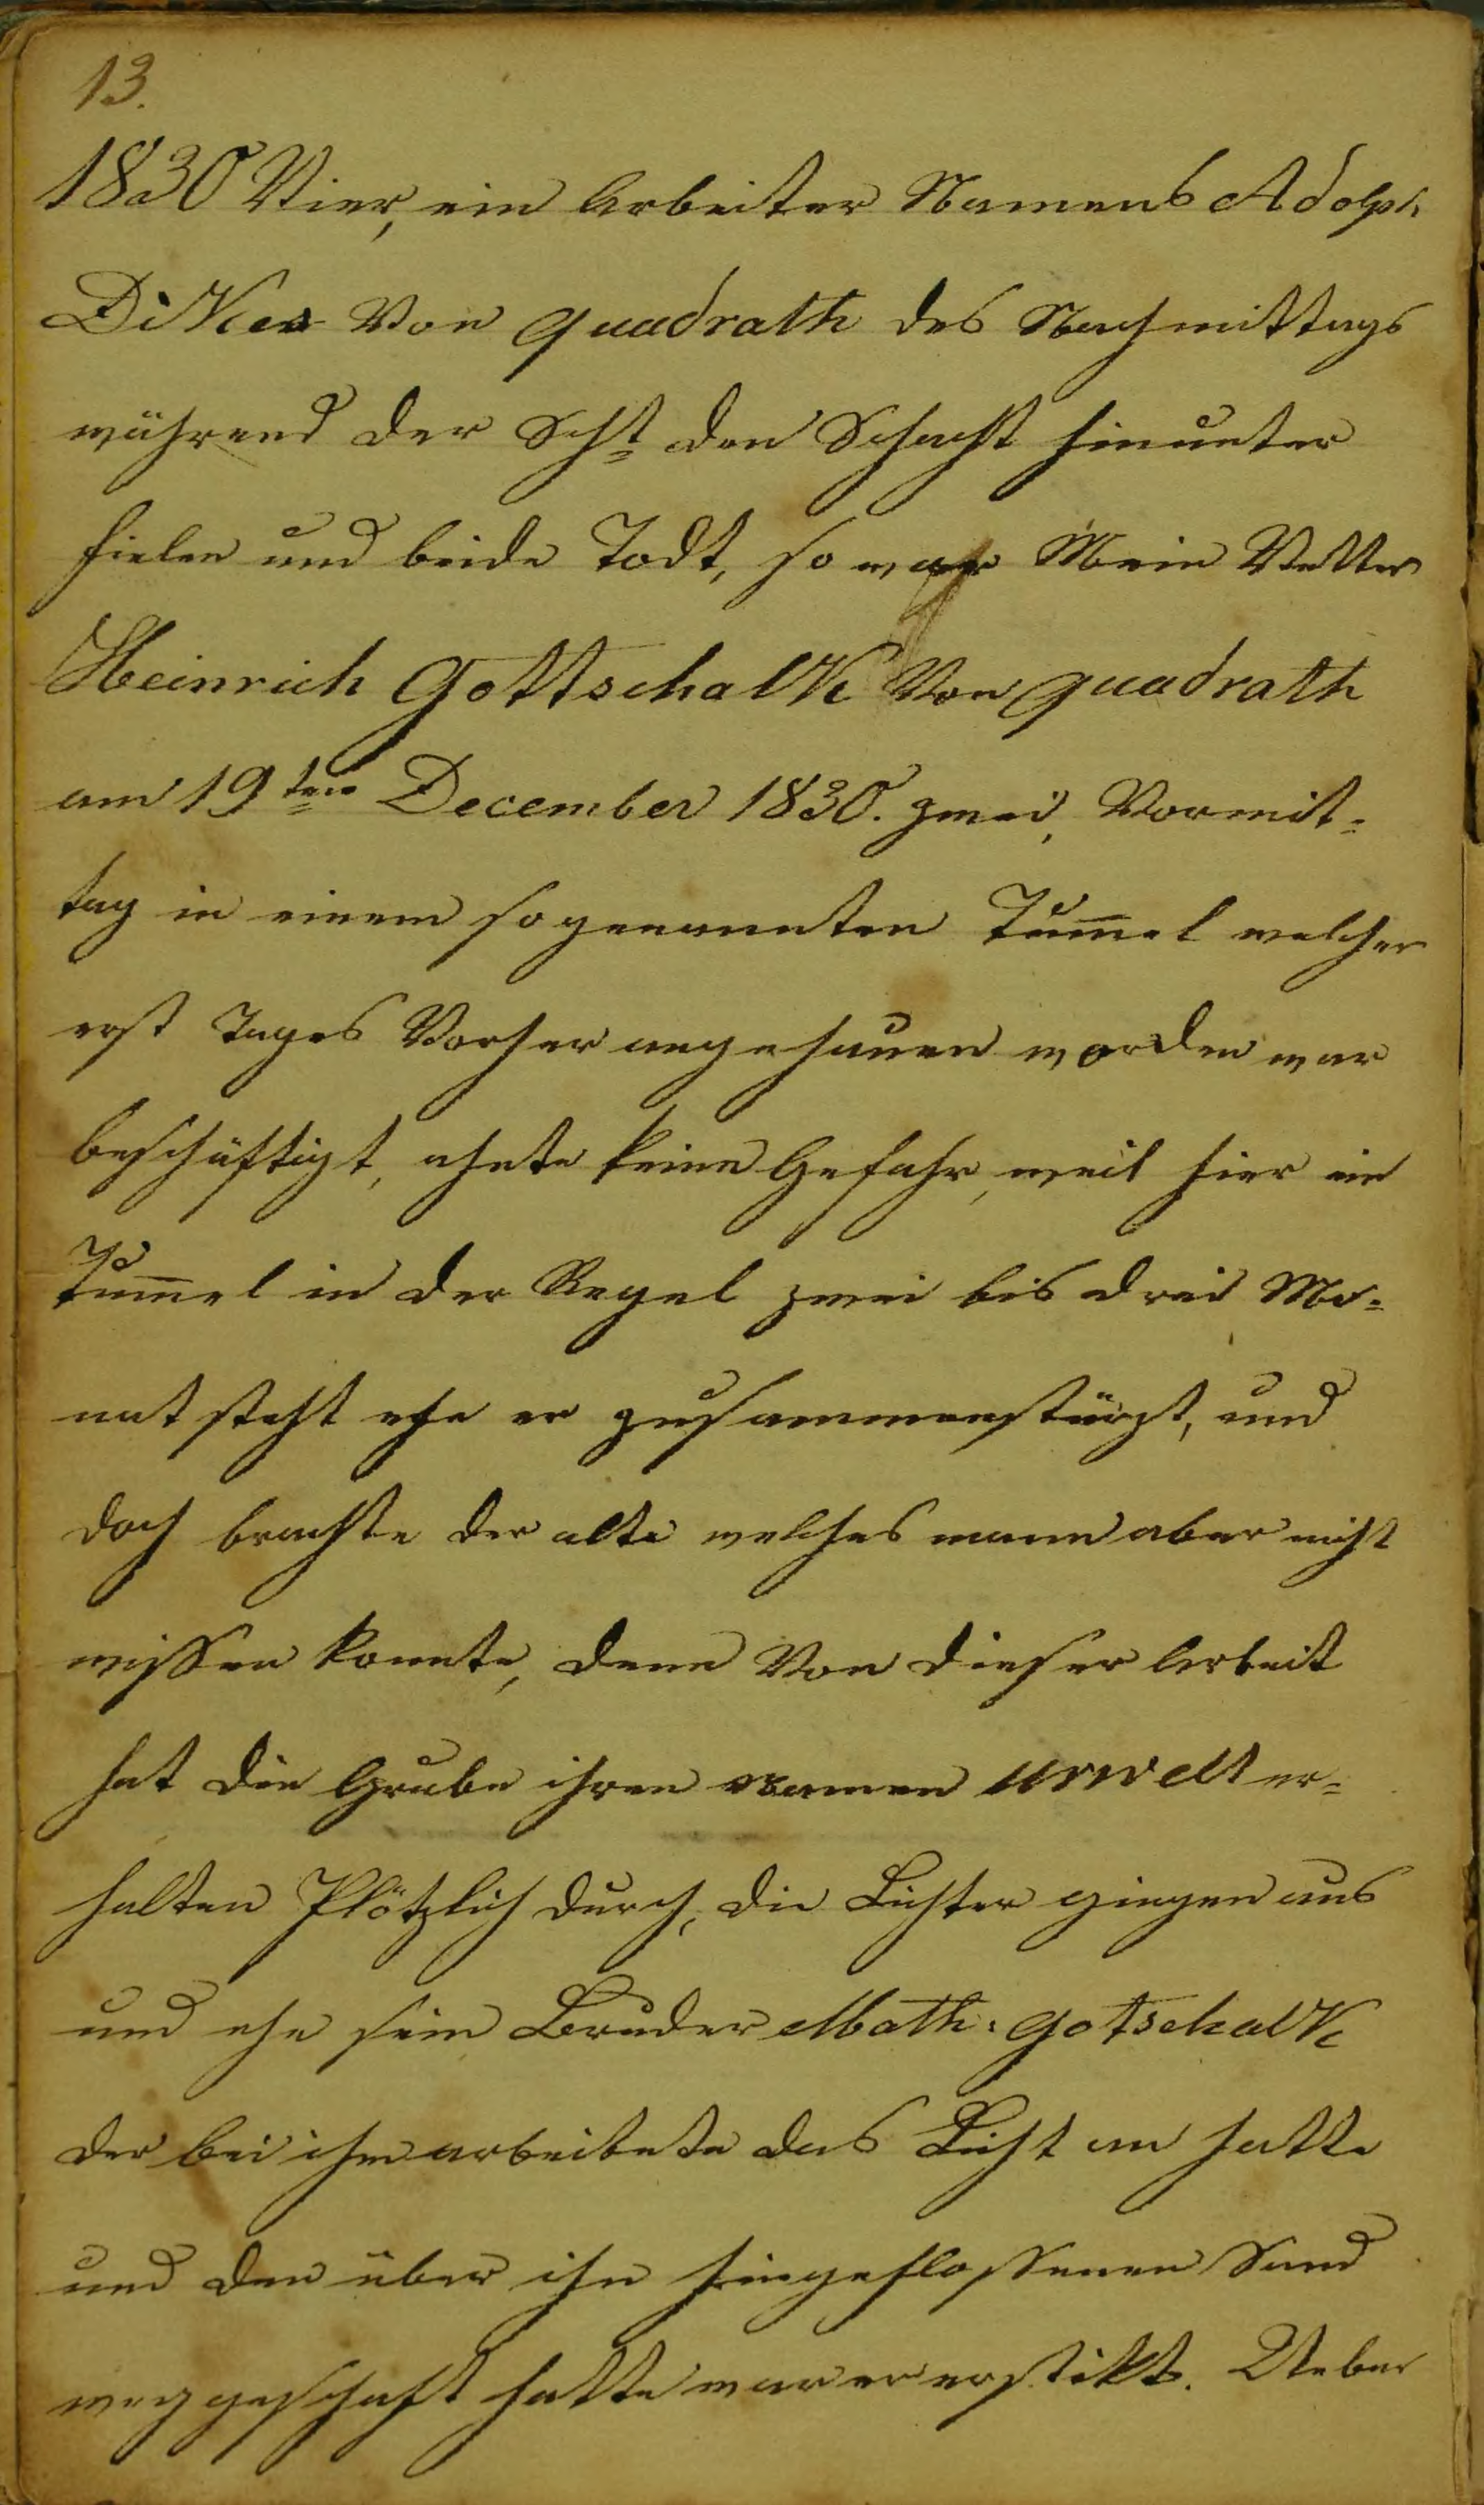 13.
1830 Vier, ein Arbeiter Namens Adolph
Dikes Von Quadrath des Nachmittags
während der Scht den Schacht hinunter
fielen und beide Todt, so war Mein Vetter
Heinrich Gottschalk Von Quadrath
am 19ten December 1830. zwei, Vormit-
tag in einem sogenannten Tum̅el welcher
erst Tages Vorher angehauen worden war
beschäftigt, ahnte keine Gefahr, weil hier ein
Tum̅el in der Regel zwei bis drei Mo-
nat steht ehe er zusammenstürzt, und
doch brachte der alte welches mann aber nicht
wissen konnte, denn Von dieser Arbeit
hat die Grube ihren namen Urwelt er-
halten Plötzlich durch, die Lichter gingen aus
und ehe sein Bruder Math: Gotschalk
der bei ihm arbeitete das Licht an hatte
und den über ihn hingeflossenen Sand
weggeschaft hatte war er erstikt. Ueber